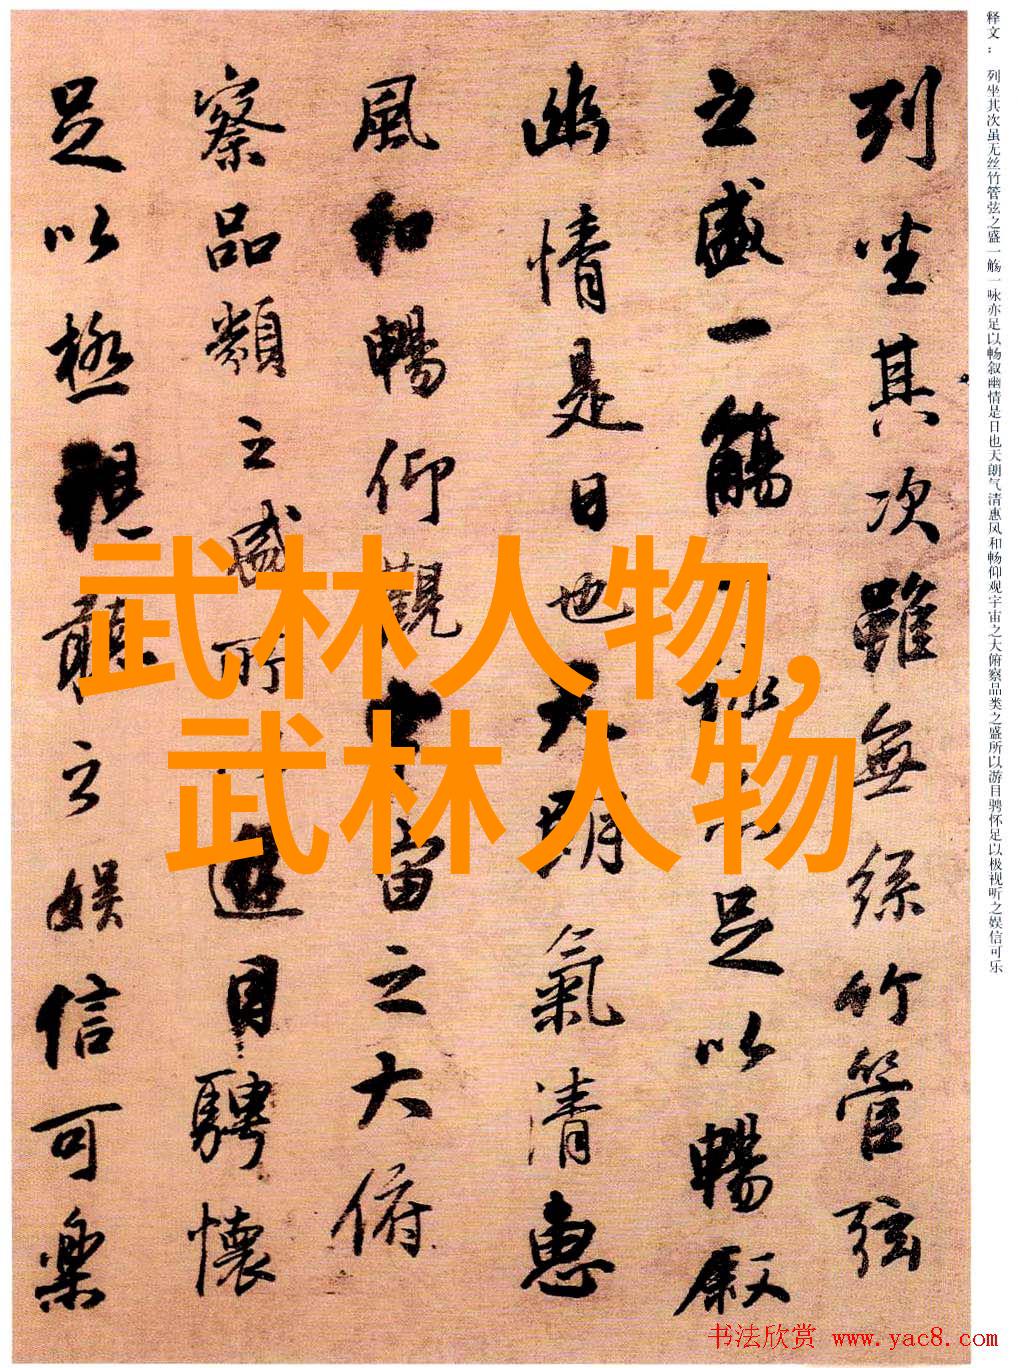 释文： 列坐其次虽无丝竹管弦之盛一觞一咏亦足以畅叙幽情是日也天朗气清惠风和畅仰观宇宙之大俯察品类之盛所以游目骋怀足以极视听之娱信可乐
列坐其次雖無絲竹管弦
之盛一觴一詠亦足以暢叙
幽情是日也天朗氣清惠
風和暢仰觀宇宙之大俯
察品類之盛所以遊目騁懷
足以極視聽之娱信可樂
武林人物,
武林人物
书法欣赏 www.yac8.com